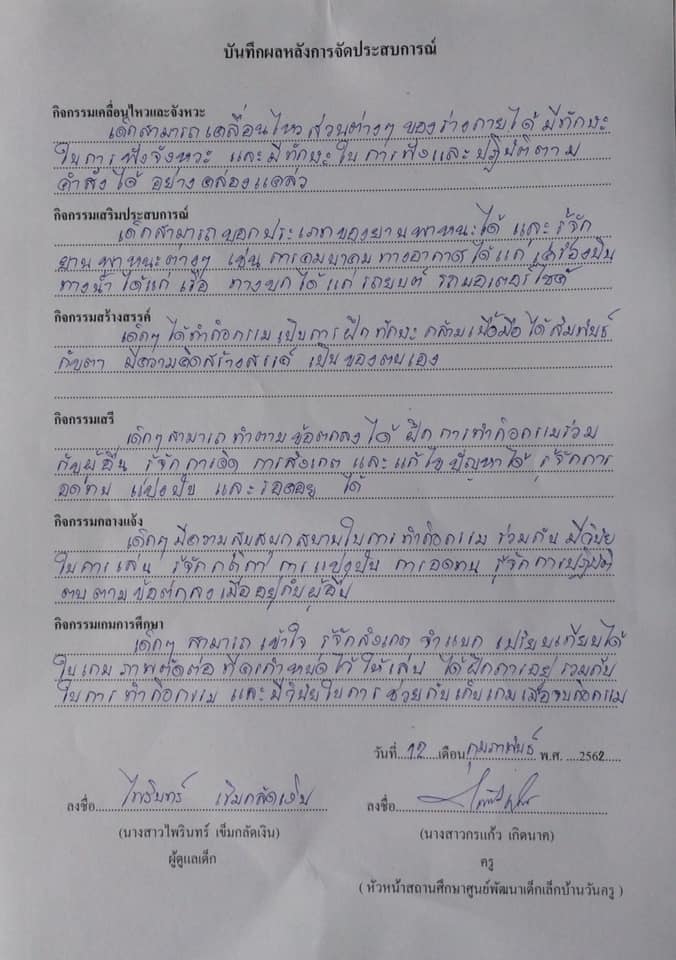 บันทึกผลหลังการจัดประสบการณ์
กิจกรรมเคลื่อนไหวและจังหวะ
เด็กสามารถเคลื่อนไหวส่วนต่างๆ ของร่างกายได้ มีทักษะ
ในการฟังจังหวะ และมีทักษะในการฟังและปฏิบัติตาม
คำสั่งได้ อย่างคล่องแคล่ว
กิจกรรมเสริมประสบการณ์
เด็กสามารถบอกประเภทของยานพาหนะได้ และรู้จัก
ยานพาหนะต่างๆ เช่น การคมนาคมทางอากาศได้แก่ เครื่องบิน
ทางน้ำ ได้แก่ เรือ ทางบก ได้แก่ รถยนต์ รถมอเตอร์ไซค์
กิจกรรมสร้างสรรค์
เด็กๆ ได้ทำกิจกรรมเป็นการฝึกทักษะกล้ามเนื้อมือได้สัมพันธ์
กับตา มีความคิดสร้างสรรค์ เป็นของตนเอง
กิจกรรมเสรี
เด็กๆ สามารถทำตามข้อตกลงได้ ฝึกการทำกิจกรรมร่วม
กับผู้อื่น รู้จักการคิด การสังเกต และแก้ไขปัญหาได้ รู้จักการ
อดทน แบ่งปัน และรอคอย ได้
กิจกรรมกลางแจ้ง
เด็กๆ มีความสนุกสนานในการทำกิจกรรม ร่วมกัน มีวินัย
ในการเล่น รู้จักกติกา การแบ่งปัน การอดทน รู้จักการปฏิบัติ
ตนตามข้อตกลงเมื่ออยู่กับผู้อื่น
กิจกรรมเกมการศึกษา
เด็กๆ สามารถ เข้าใจ รู้จักสังเกต จำแนก เปรียบเทียบได้
ในเกม ภาพตัดต่อ ที่ครูกำหนดไว้ ให้เล่น ได้ฝึกการอยู่ร่วมกัน
ในการทำกิจกรรม และมีวินัยในการช่วยกันเก็บเกมเมื่อจบกิจกรรม
วันที่ 12 เดือน กุมภาพันธ์ พ.ศ. 2562
ลงชื่อ ไพรินทร์ เข็มกลัดเงิน ลงชื่อ
(นางสาวไพรินทร์ เข็มกลัดเงิน) (นางสาวกรแก้ว เกิดนาค)
ผู้ดูแลเด็ก ครู
( หัวหน้าสถานศึกษาศูนย์พัฒนาเด็กเล็กบ้านวันครู )